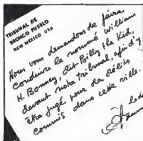 TRIBUNAL DE
BRONCO PUEBLO
NEW MEXICO USA
Nous vous demandons de faire
conduire le nommé William
H. Bonney, dit Billy the Kid,
devant notre tribunal, afin d'y
être jugé pour des délits
commis dans cette ville.